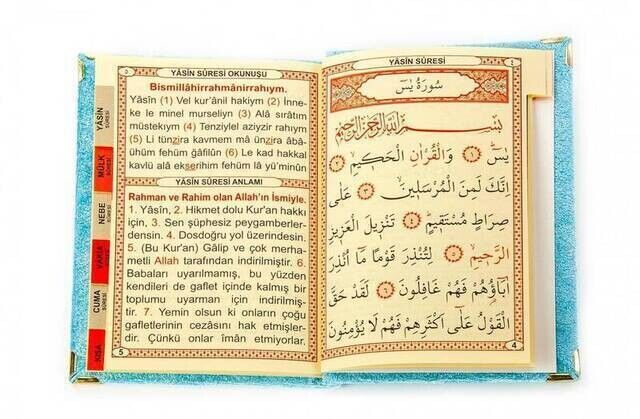 ٥
YÂSÎN SÛRESİ OKUNUŞU
Bismillâhirrahmânirrahıym.
Yâsîn (1) Vel kur'ânil hakiym (2) İnne-
ke le minel murseliyn (3) Alâ sırâtım
müstekıym (4) Tenziylel aziyzir rahıym
(5) Li tünzira kavmem mâ ünzira âbâ-
ühüm fehüm ğâfilûn (6) Le kad hakkal
kavlü alâ ekserihim fehüm lâ yü'minûn
YÂSÎN SÛRESİ ANLAMI
Rahman ve Rahim olan Allah'ın İsmiyle.
1. Yâsîn, 2. Hikmet dolu Kur'an hakkı
için, 3. Sen şüphesiz peygamberler-
densin. 4. Dosdoğru yol üzerindesin.
5. (Bu Kur'an) Gâlip ve çok merha-
metli Allah tarafından indirilmiştir. 6.
Babaları uyarılmamış, bu yüzden
kendileri de gaflet içinde kalmış bir
toplumu uyarman için indirilmiş-
tir. 7. Yemin olsun ki onların çoğu
gafletlerinin cezasını hak etmişler-
dir. Çünkü onlar îman etmiyorlar.
5
YÂSÎN
SÛRESİ
MÜLK
SÛRESİ
NEBE
SÛRESİ
VÂKIA
SÛRESİ
CUMA
SÛRESİ
KISA
YÂSÎN SÛRESİ
٤
سُورَةُ يٰسٓ
بِسْمِ اللّٰهِ الرَّحْمٰنِ الرَّحِيمِ
يٰسٓ ﴿١﴾ وَالْقُرْاٰنِ الْحَكِيمِ ﴿٢﴾
اِنَّكَ لَمِنَ الْمُرْسَلِينَ ﴿٣﴾ عَلٰى
صِرَاطٍ مُسْتَقِيمٍ ﴿٤﴾ تَنْزِيلَ الْعَزِيزِ
الرَّحِيمِ ﴿٥﴾ لِتُنْذِرَ قَوْمًا مَٓا اُنْذِرَ
اٰبَٓاؤُهُمْ فَهُمْ غَافِلُونَ ﴿٦﴾ لَقَدْ حَقَّ
الْقَوْلُ عَلٰٓى اَكْثَرِهِمْ فَهُمْ لَا يُؤْمِنُونَ
4